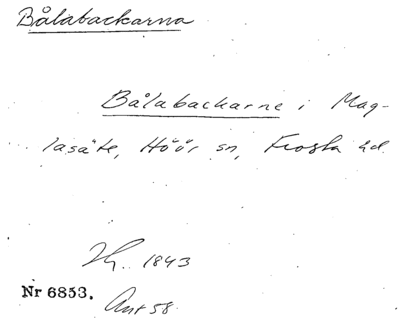 Bålabackarna
Bålabackarne i Mag-
lasäte, Höör sn, Frosta hd.
Hg. 1843
Nr 6853.
Ant 58.